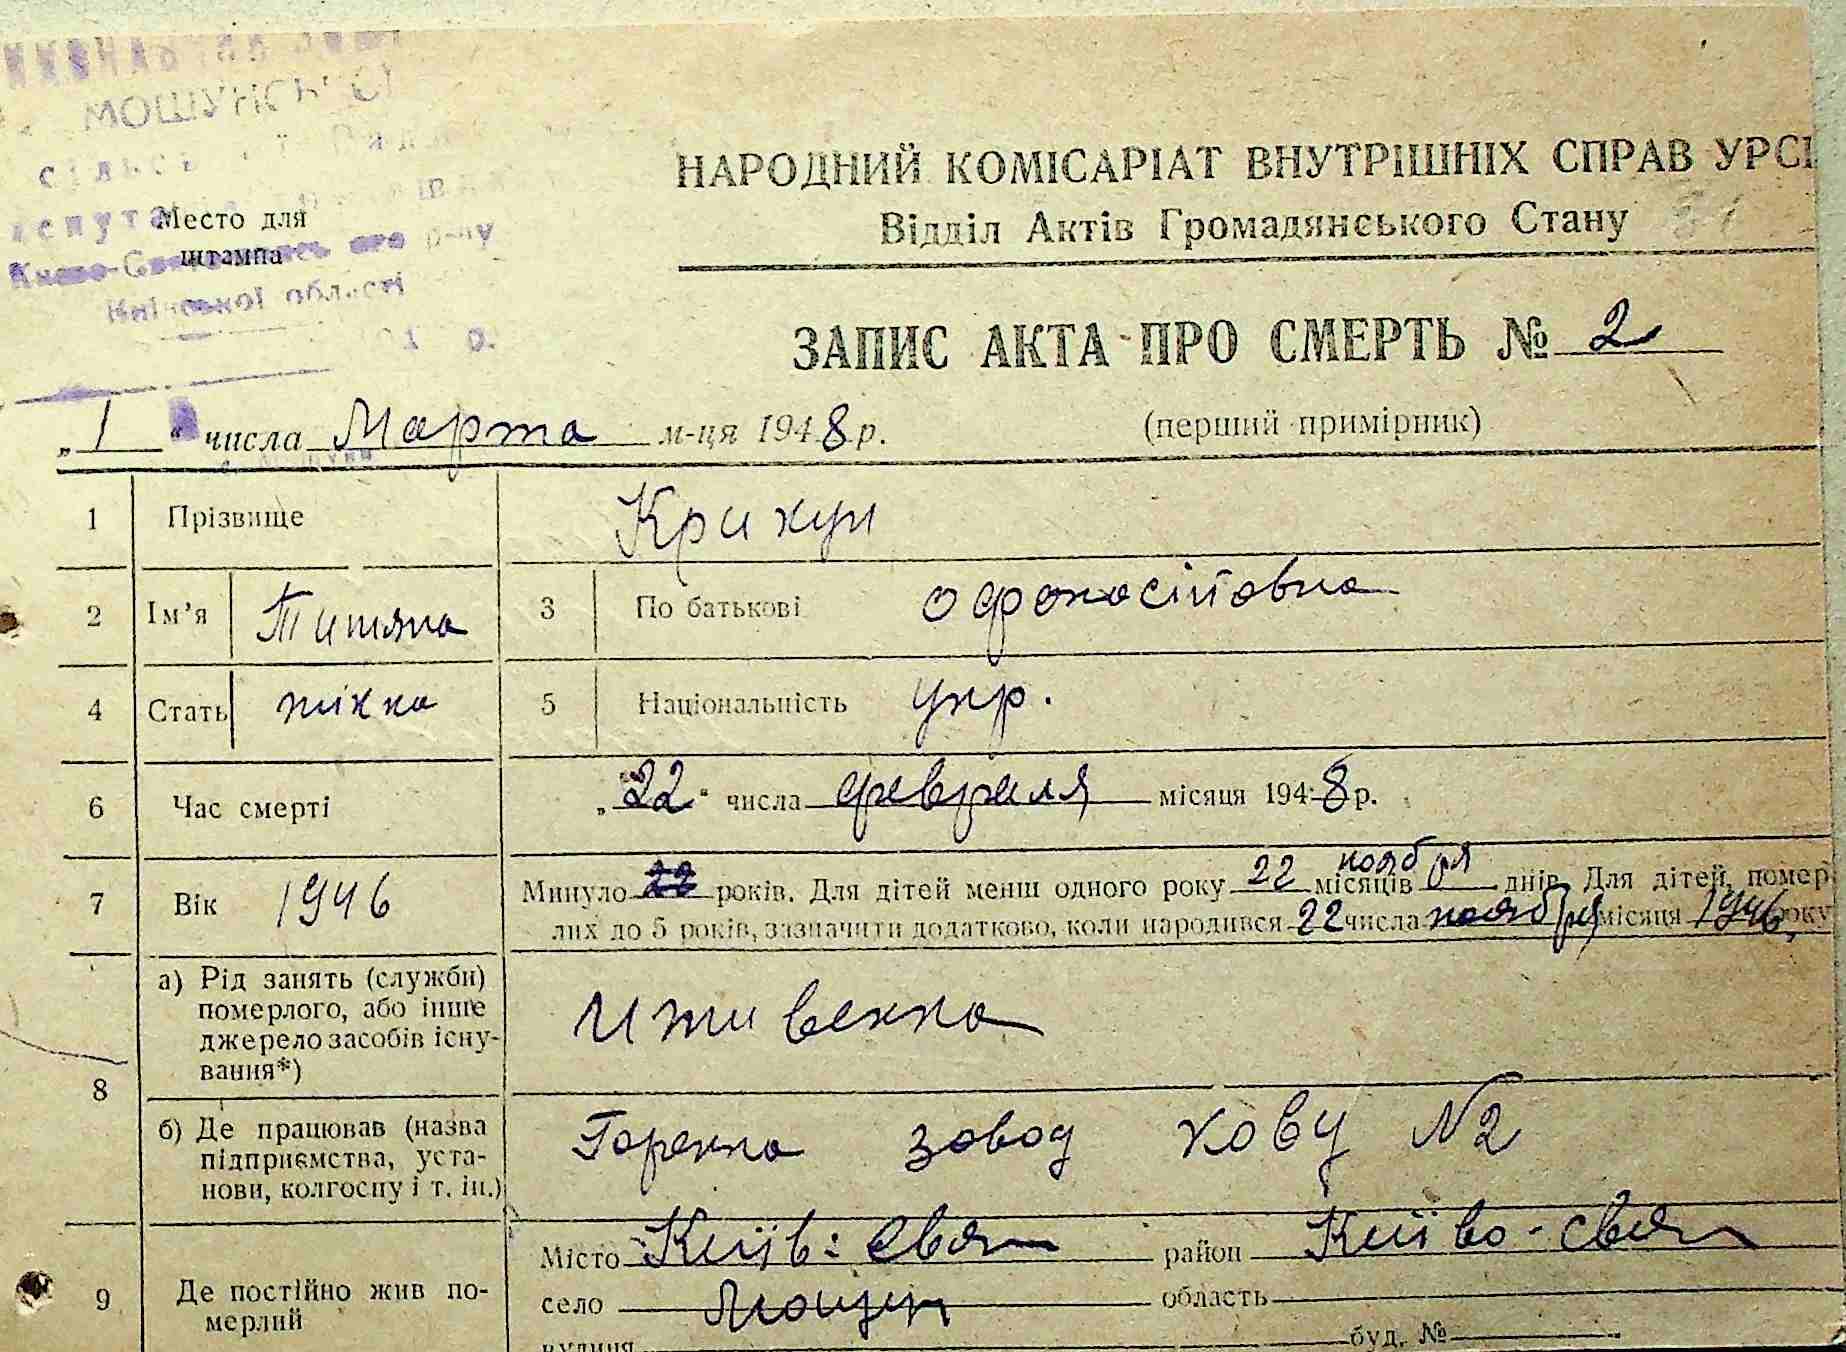 МОШУНСЬКОЇ
Київської області
Место для
штампа
НАРОДНИЙ КОМІСАРІАТ ВНУТРІШНІХ СПРАВ УРСР
Відділ Актів Громадянського Стану
ЗАПИС АКТА ПРО СМЕРТЬ № 2
„1“ числа Марта м-ця 1948 р.
(перший примірник)
1 Прізвище Крикун
2 Ім’я Титяна 3 По батькові Офонасіївовна
4 Стать жінка 5 Національність укр.
6 Час смерті „22“ числа февраля місяця 1948 р.
7 Вік 1946 Минуло 22 років. Для дітей менш одного року 22 ноября місяців днів. Для дітей, помер-
лих до 5 років, зазначити додатково, коли народився 22 числа ноября місяця 1946 року
8 а) Рід занять (служби)
померлого, або інше
джерело засобів існу-
вання*)
Иживенка
б) Де працював (назва
підприємства, уста-
нови, колгоспу і т. ін.)
Горенка зовод № 2
9 Де постійно жив по-
мерлий
Місто Київ: Свят район Києво-Свят
село Мощун область
вулиця буд. №